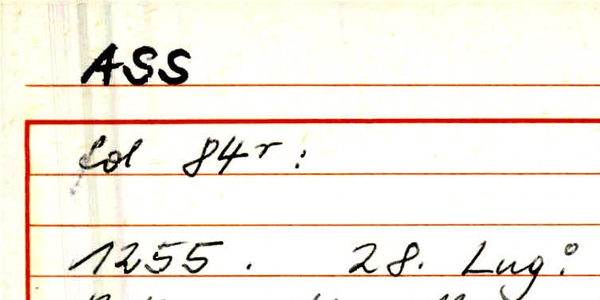 ASS
fol 84r:
1255. 28. Lug: